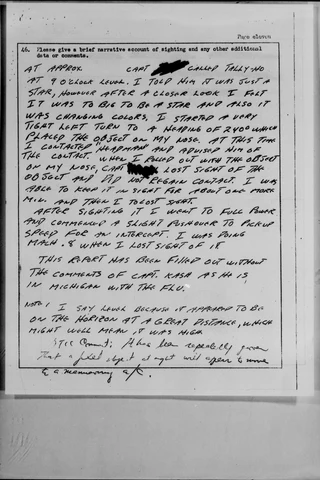 Page eleven
46. Please give a brief narrative account of sighting and any other additional
data or comments.
AT APPROX CAPT CALLED TALLY HO
AT 9 O'CLOCK LEVEL. I TOLD HIM IT WAS JUST A
STAR, HOWEVER AFTER A CLOSER LOOK I FELT
IT WAS TO BIG TO BE A STAR AND ALSO IT
WAS CHANGING COLORS. I STARTED A VERY
TIGHT LEFT TURN TO A HEADING OF 240° WHICH
PLACED THE OBJECT ON MY NOSE. AT THIS TIME
I CONTACTED HEADMAN AND ADVISED HIM OF
THE CONTACT. WHEN I ROLLED OUT WITH THE OBJECT
ON MY NOSE, CAPT LOST SIGHT OF THE
OBJECT AND DID NOT REGAIN CONTACT. I WAS
ABLE TO KEEP IT IN SIGHT FOR ABOUT ONE MORE
MIN. AND THEN I TO LOST SIGHT.
AFTER SIGHTING IT I WENT TO FULL POWER
AND COMMENCED A SLIGHT PUSHOVER TO PICKUP
SPEED FOR AN INTERCEPT. I WAS DOING
MACH .8 WHEN I LOST SIGHT OF IT
THIS REPORT HAS BEEN FILLED OUT WITHOUT
THE COMMENTS OF CAPT. KASH AS HE IS
IN MICHIGAN WITH THE FLU.
NOTE: I SAY LEVEL BECAUSE IT APPEARED TO BE
ON THE HORIZON AT A GREAT DISTANCE, WHICH
MIGHT WELL MEAN IT WAS HIGH.
Comment: It has been repeatedly proven
that a fixed object at night will appear to move
to a maneuvering a/c.